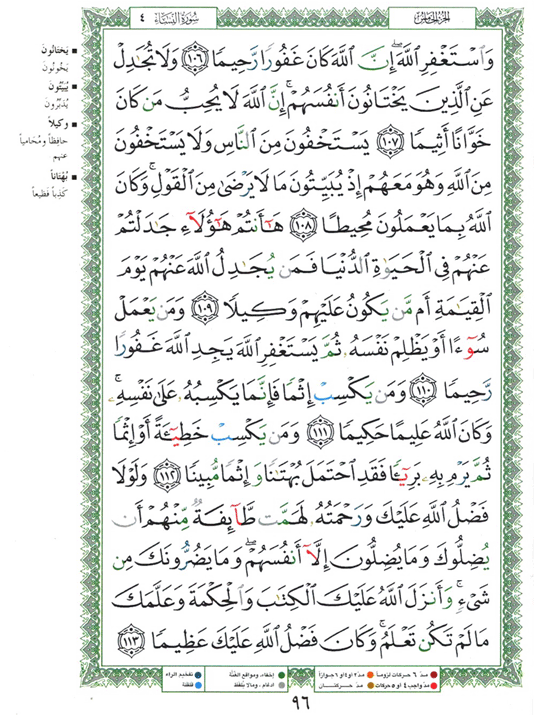 الجزء الخامس
سُورَةُ النِّسَاءِ ٤
وَٱسۡتَغۡفِرِ ٱللَّهَۖ إِنَّ ٱللَّهَ كَانَ غَفُورٗا رَّحِيمٗا ١٠٦ وَلَا تُجَٰدِلۡ
عَنِ ٱلَّذِينَ يَخۡتَانُونَ أَنفُسَهُمۡۚ إِنَّ ٱللَّهَ لَا يُحِبُّ مَن كَانَ
خَوَّانًا أَثِيمٗا ١٠٧ يَسۡتَخۡفُونَ مِنَ ٱلنَّاسِ وَلَا يَسۡتَخۡفُونَ
مِنَ ٱللَّهِ وَهُوَ مَعَهُمۡ إِذۡ يُبَيِّتُونَ مَا لَا يَرۡضَىٰ مِنَ ٱلۡقَوۡلِۚ وَكَانَ
ٱللَّهُ بِمَا يَعۡمَلُونَ مُحِيطًا ١٠٨ هَٰٓأَنتُمۡ هَٰٓؤُلَآءِ جَٰدَلۡتُمۡ
عَنۡهُمۡ فِي ٱلۡحَيَوٰةِ ٱلدُّنۡيَا فَمَن يُجَٰدِلُ ٱللَّهَ عَنۡهُمۡ يَوۡمَ
ٱلۡقِيَٰمَةِ أَم مَّن يَكُونُ عَلَيۡهِمۡ وَكِيلٗا ١٠٩ وَمَن يَعۡمَلۡ
سُوٓءًا أَوۡ يَظۡلِمۡ نَفۡسَهُۥ ثُمَّ يَسۡتَغۡفِرِ ٱللَّهَ يَجِدِ ٱللَّهَ غَفُورٗا
رَّحِيمٗا ١١٠ وَمَن يَكۡسِبۡ إِثۡمٗا فَإِنَّمَا يَكۡسِبُهُۥ عَلَىٰ نَفۡسِهِۦۚ
وَكَانَ ٱللَّهُ عَلِيمًا حَكِيمٗا ١١١ وَمَن يَكۡسِبۡ خَطِيٓـَٔةً أَوۡ إِثۡمٗا
ثُمَّ يَرۡمِ بِهِۦ بَرِيٓـٔٗا فَقَدِ ٱحۡتَمَلَ بُهۡتَٰنٗا وَإِثۡمٗا مُّبِينٗا ١١٢ وَلَوۡلَا
فَضۡلُ ٱللَّهِ عَلَيۡكَ وَرَحۡمَتُهُۥ لَهَمَّت طَّآئِفَةٞ مِّنۡهُمۡ أَن
يُضِلُّوكَ وَمَا يُضِلُّونَ إِلَّآ أَنفُسَهُمۡۖ وَمَا يَضُرُّونَكَ مِن
شَيۡءٖۚ وَأَنزَلَ ٱللَّهُ عَلَيۡكَ ٱلۡكِتَٰبَ وَٱلۡحِكۡمَةَ وَعَلَّمَكَ
مَا لَمۡ تَكُن تَعۡلَمُۚ وَكَانَ فَضۡلُ ٱللَّهِ عَلَيۡكَ عَظِيمٗا ١١٣
■ يَخْتانُونَ
يَخُونُونَ
■ يُبَيِّتُونَ
يُدَبِّرُونَ
■ وكيلاً
حافِظاً ومُحَامِياً
عنهم
■ بُهْتاناً
كَذِباً فظيعاً
مدّ ٦ حركات لزوماً
مدّ ٢ أو ٤ أو ٦ جوازاً
مدّ واجب ٤ أو ٥ حركات
مدّ حركتان
إخفاء، ومواقع الغُنَّة
ادغام، ومالا يُلفَظ
تفخيم الراء
قلقلة
٩٦